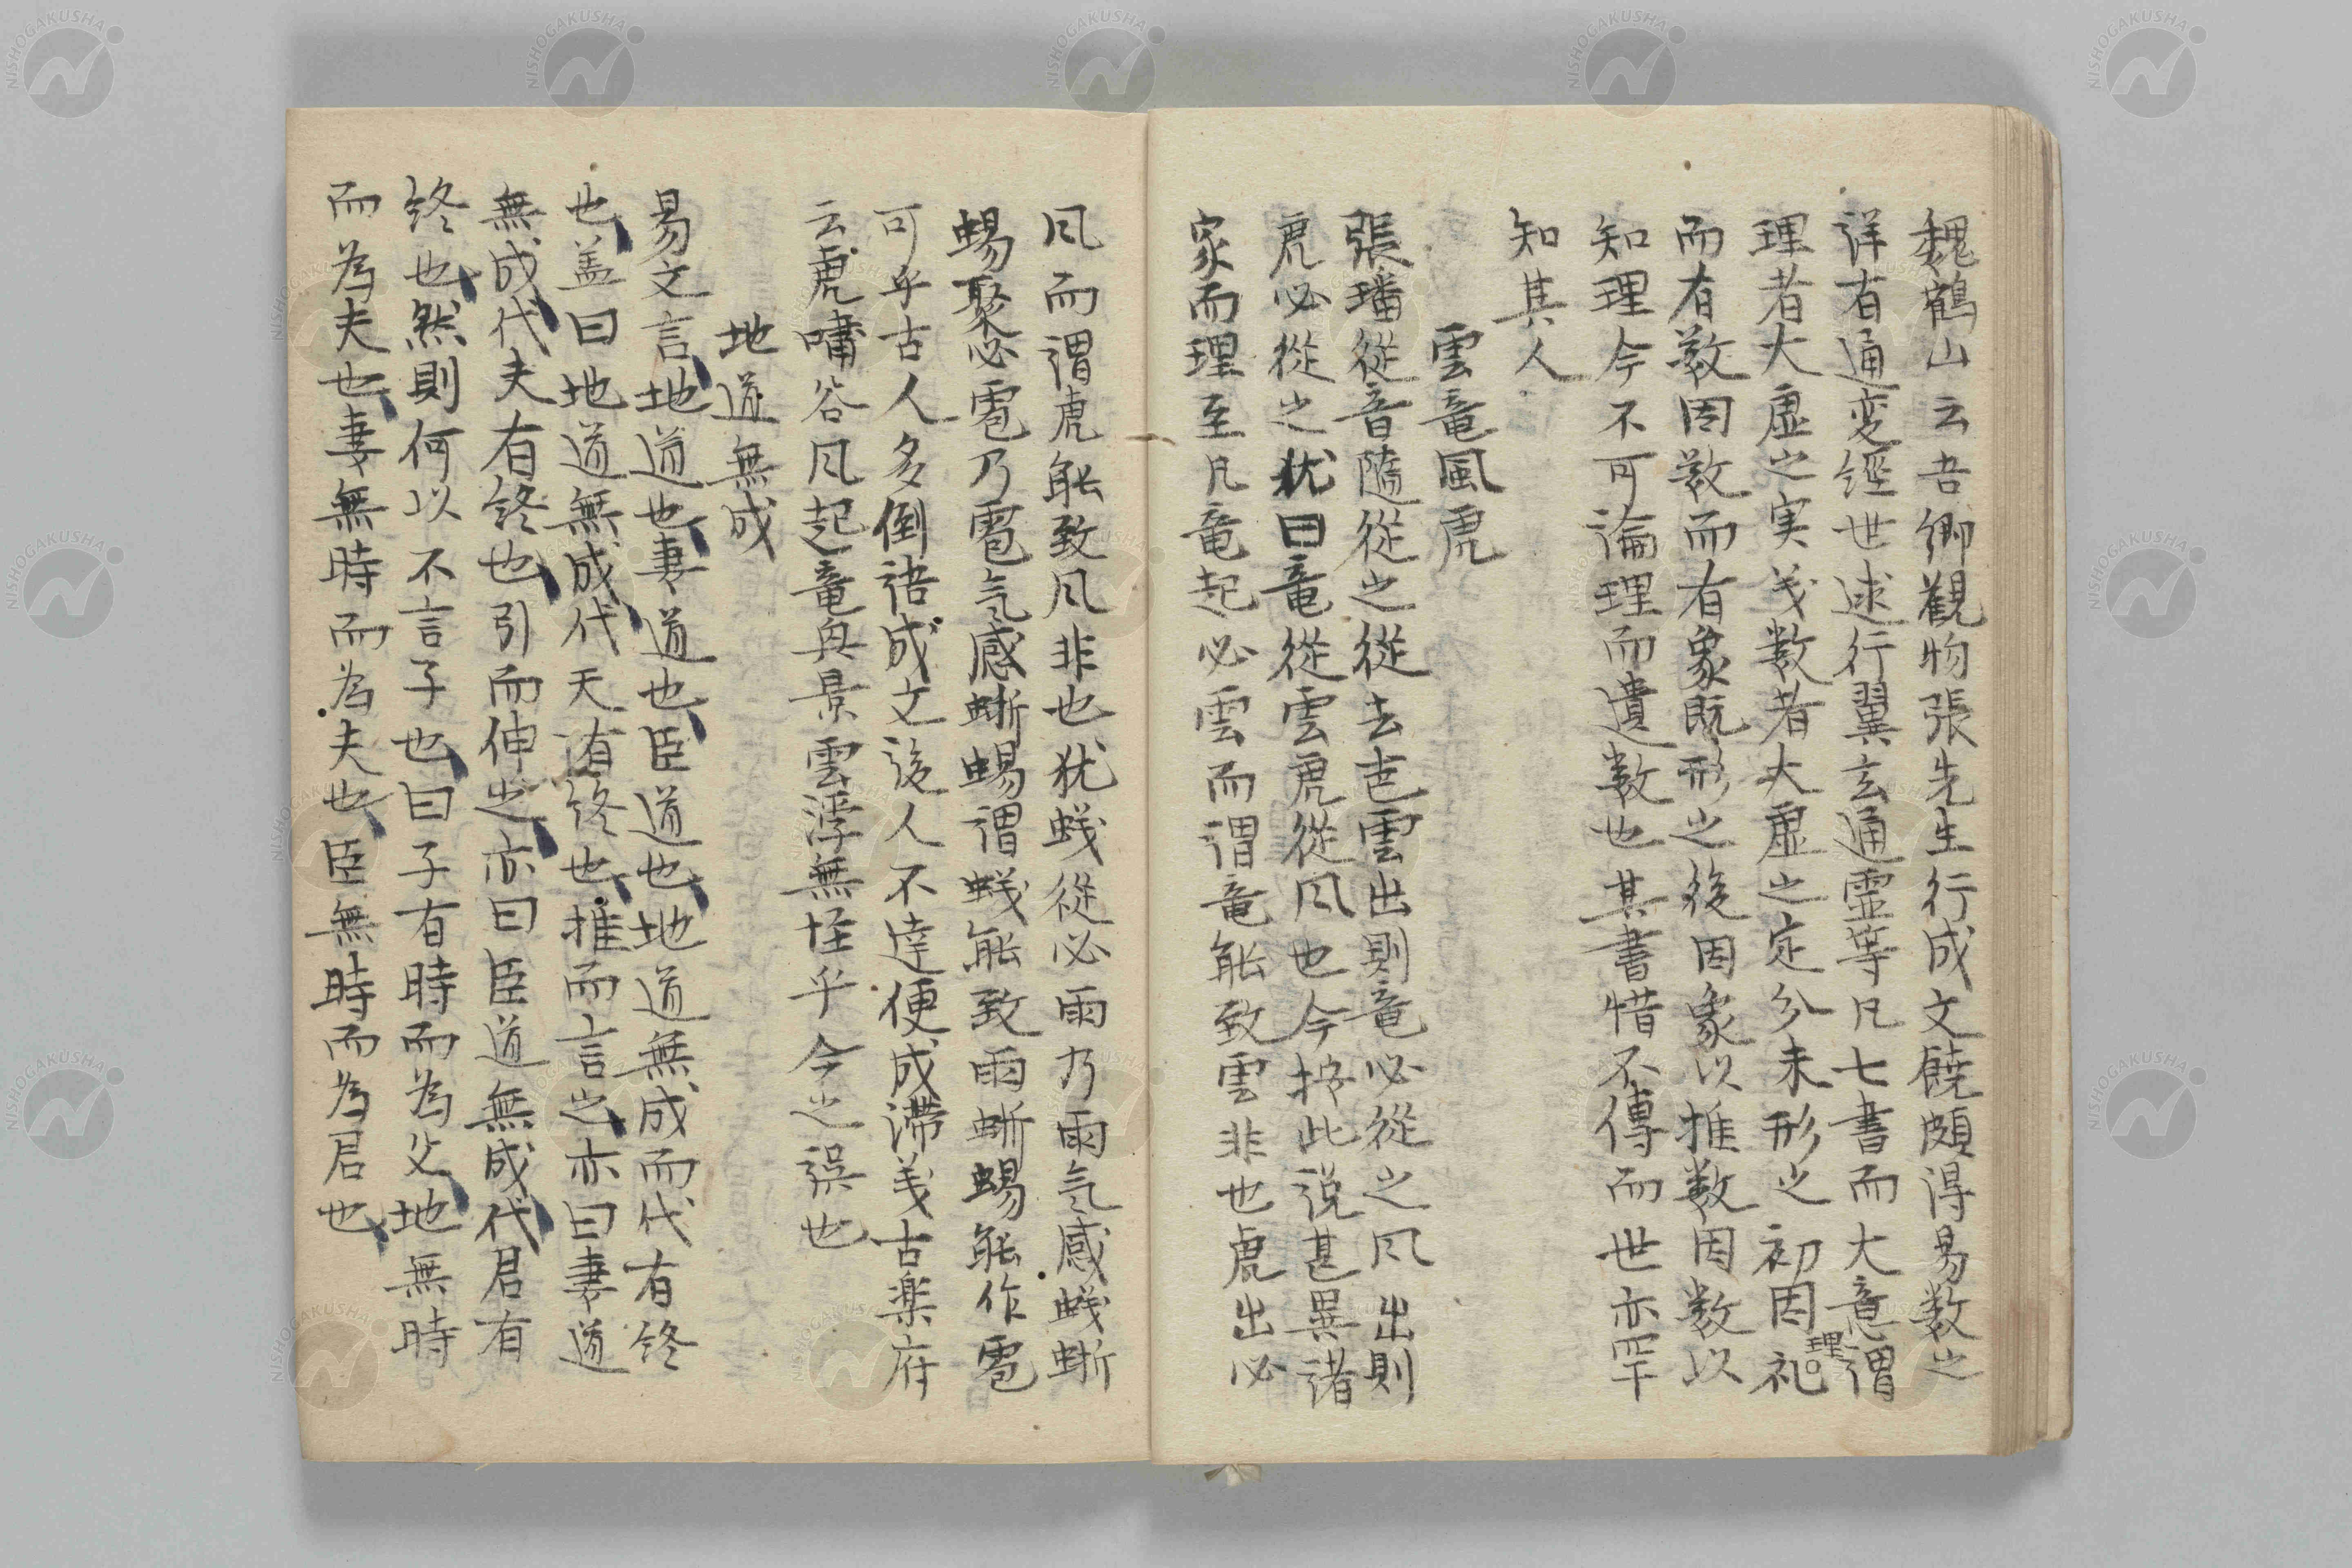 魏鶴山云吾卿觀物張先生行成文饒頗得易数之
詳有通変經世述行翼玄通霊等凡七書而大意謂
理者大虚之実义数者大虚之定分未形之初因礼理
而有数因数而有象既形之後因象以推数因数以
知理今不可論理而遺数也其書惜不傳而世亦罕
知其人
雲竜風虎
張璠從音隨從之從去声雲出則竜必從之风出則
虎必從之犹曰竜從雲虎從风也今按此説甚異諸
家而理至凡竜起必雲而謂竜能致雲非也虎出必
风而謂虎能致风非也犹蛾從必雨乃雨気感蛾蜥
蜴聚必雹乃雹気感蜥蜴謂蛾能致雨蜥蜴能作雹
可乎古人多倒语成文後人不達便成滞义古楽府
云虎嘯谷风起竜興景雲浮無怪乎今之誤也
地道無成
易文言地道也妻道也臣道也地道無成而代有终
也盖曰地道無成代天有终也推而言之亦曰妻道
無成代夫有终也引而伸之亦曰臣道無成代君有
终也然則何以不言子也曰子有時而為父地無時
而為夫也妻無時而為夫也臣無時而為君也
NISHOGAKUSHA